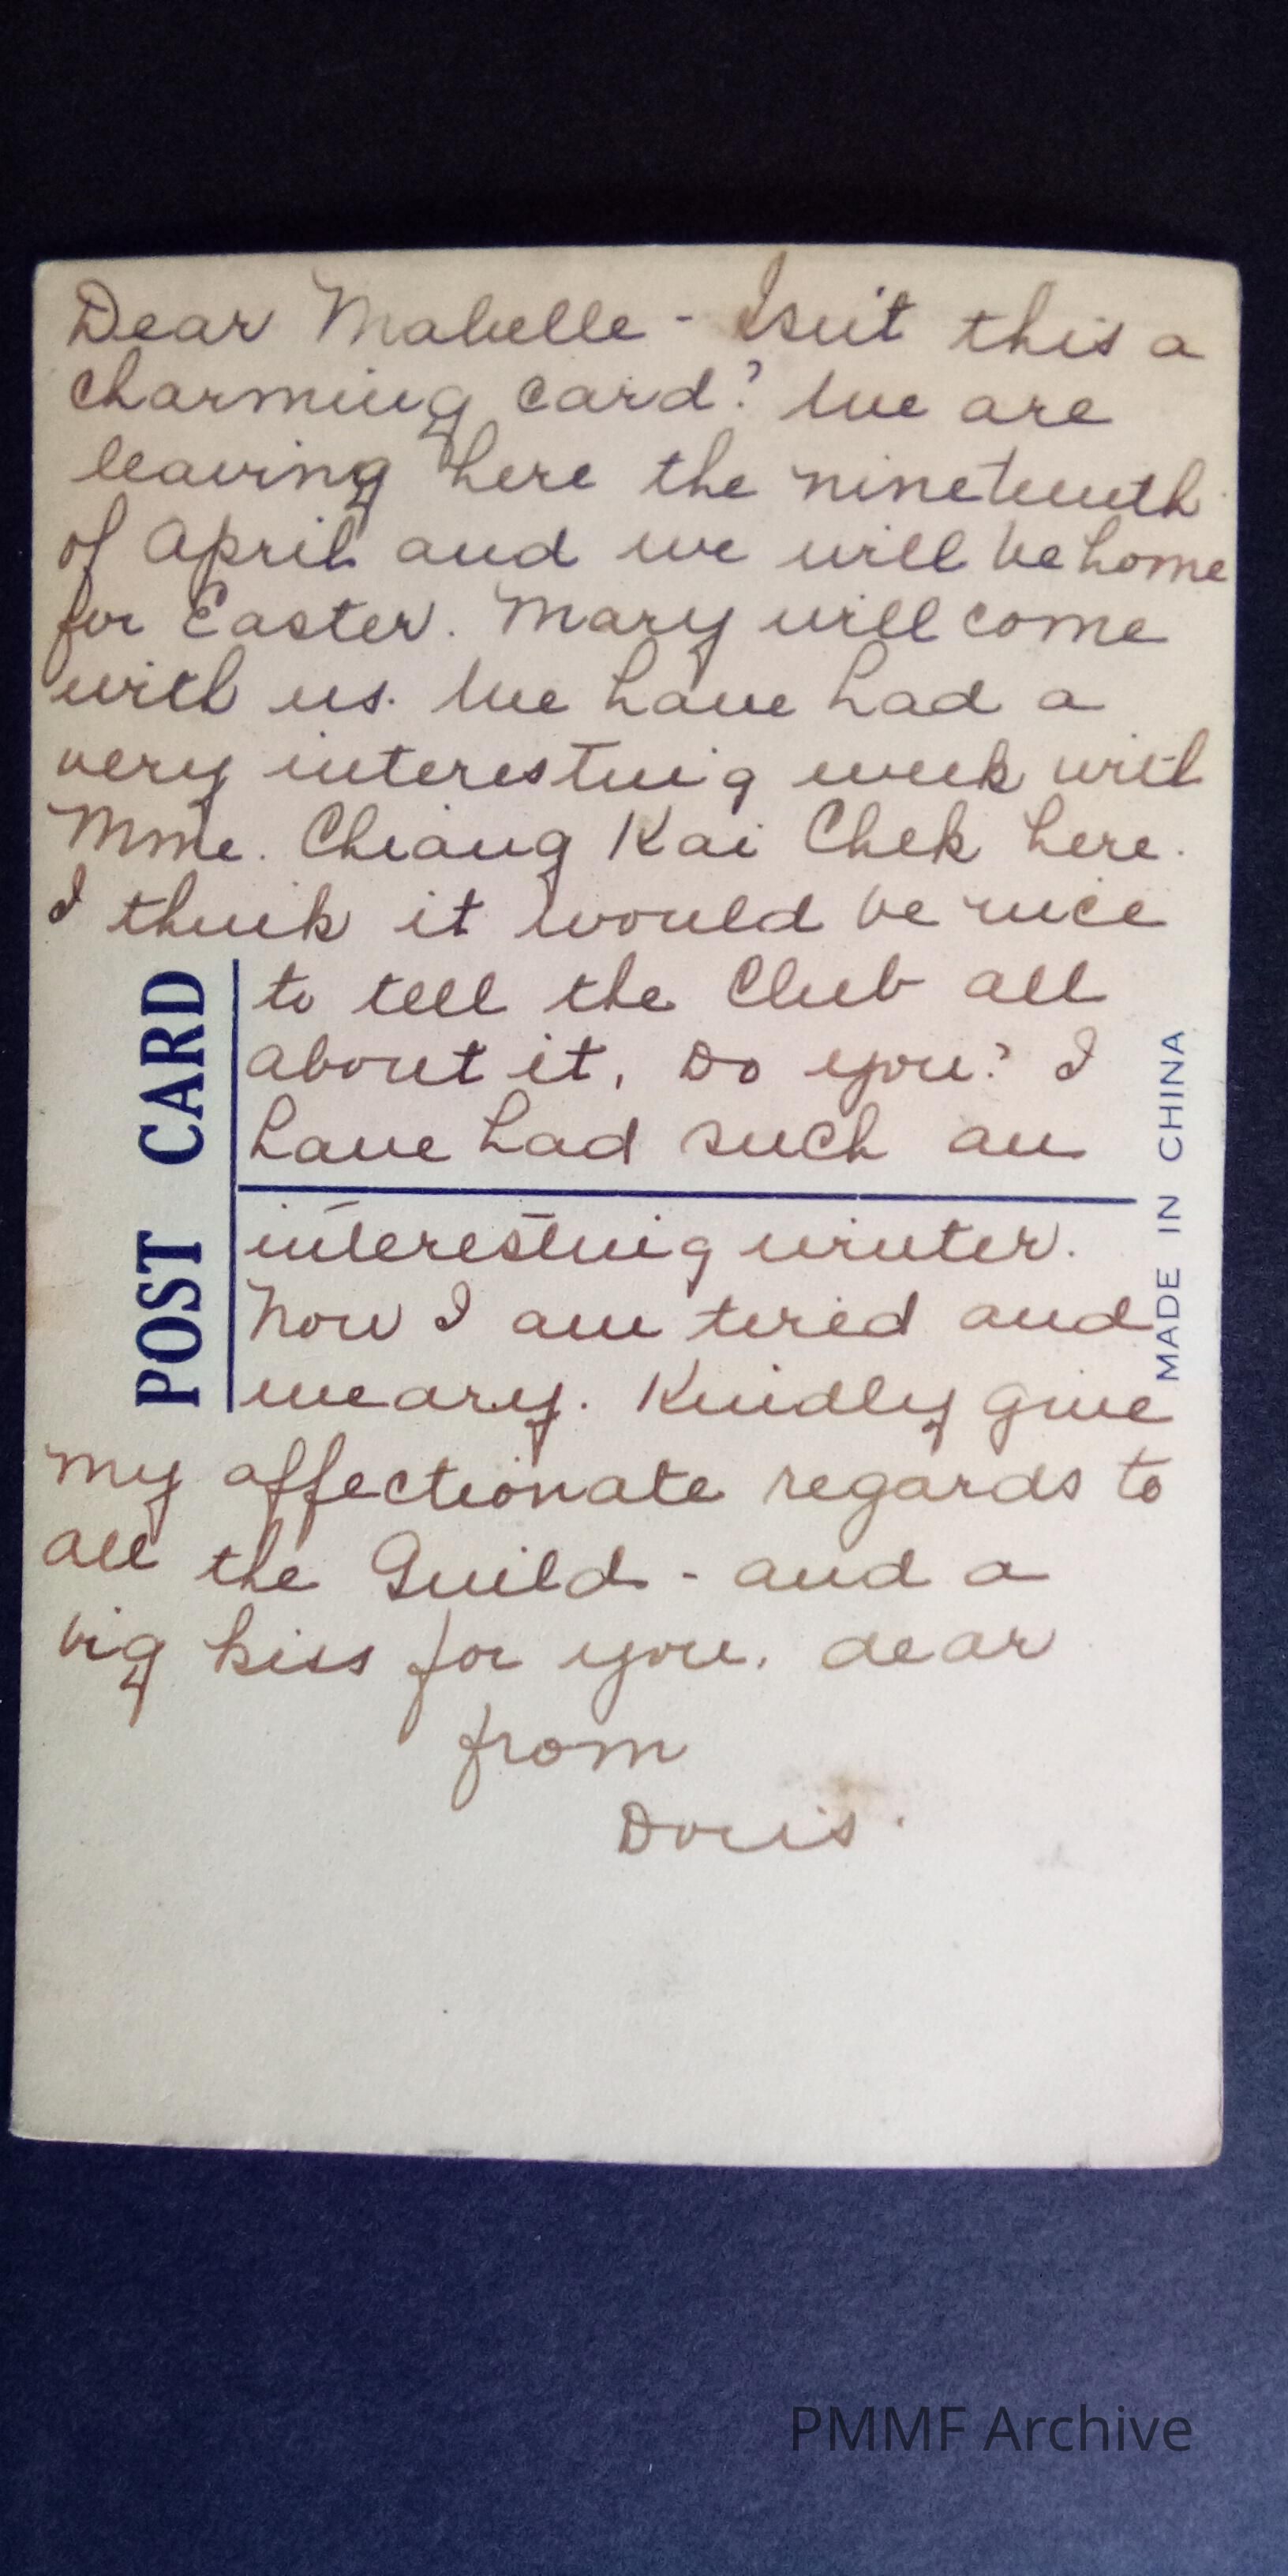 Dear Mabelle - Isn't this a
charming card? We are
leaving here the nineteenth
of April and we will be home
for Easter. Mary will come
with us. We have had a
very interesting week with
Mme. Chiang Kai Chek here.
I think it would be nice
to tell the Club all
about it, Do you? I
have had such an
interesting winter.
Now I am tired and
weary. Kindly give
my affectionate regards to
all the Guild - and a
big kiss for you, dear
from
Doris.
POST CARD
MADE IN CHINA
PMMF Archive